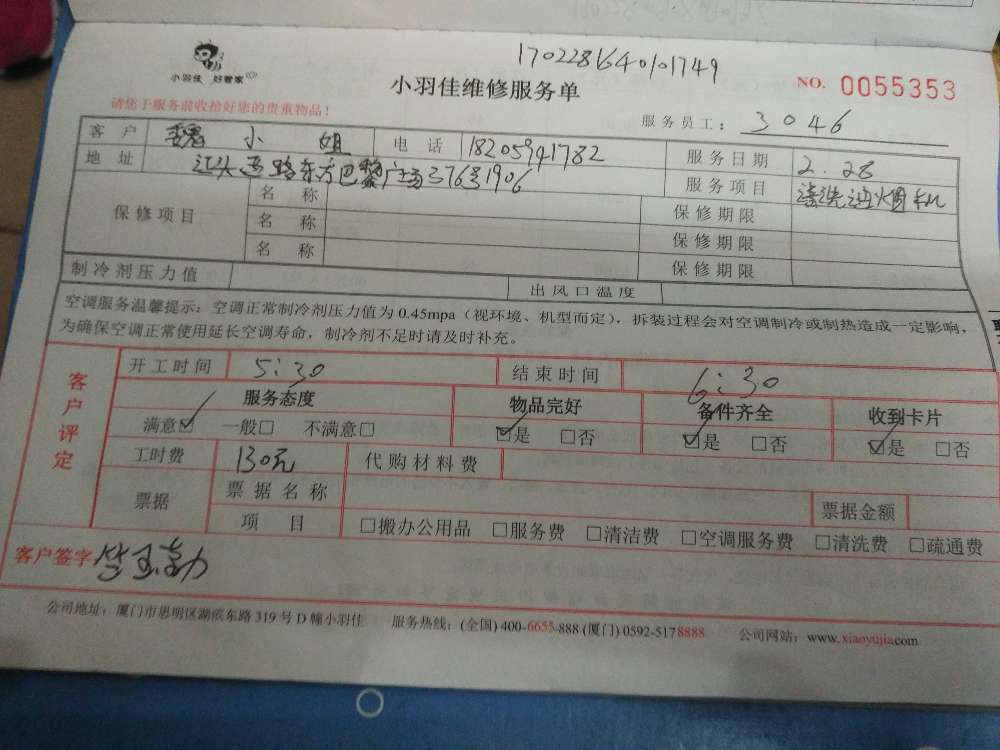 1702281640101749
小羽佳 好管家
小羽佳维修服务单
NO. 0055353
请您于服务前收拾好您的贵重物品!
服务员工: 3046
客户 魏小姐 电话 18205941782 服务日期 2.28
地址 江头 路东方巴黎广场376号1906 服务项目 清洗油烟机
保修项目 名称 保修期限
名称 保修期限
名称 保修期限
制冷剂压力值 出风口温度
空调服务温馨提示:空调正常制冷剂压力值为0.45mpa(视环境、机型而定),拆装过程会对空调制冷或制热造成一定影响,
为确保空调正常使用延长空调寿命,制冷剂不足时请及时补充。
客户评定
开工时间 5:30 结束时间 6:30
服务态度 物品完好 备件齐全 收到卡片
满意☑ 一般□ 不满意□ ☑是 □否 ☑是 □否 ☑是 □否
工时费 130元 代购材料费
票据 票据名称 票据金额
项目 □搬办公用品 □服务费 □清洁费 □空调服务费 □清洗费 □疏通费
客户签字
公司地址:厦门市思明区湖滨东路319号D幢小羽佳 服务热线:(全国)400-6655-888 (厦门) 0592-5178888 公司网站:www.xiaoyujia.com